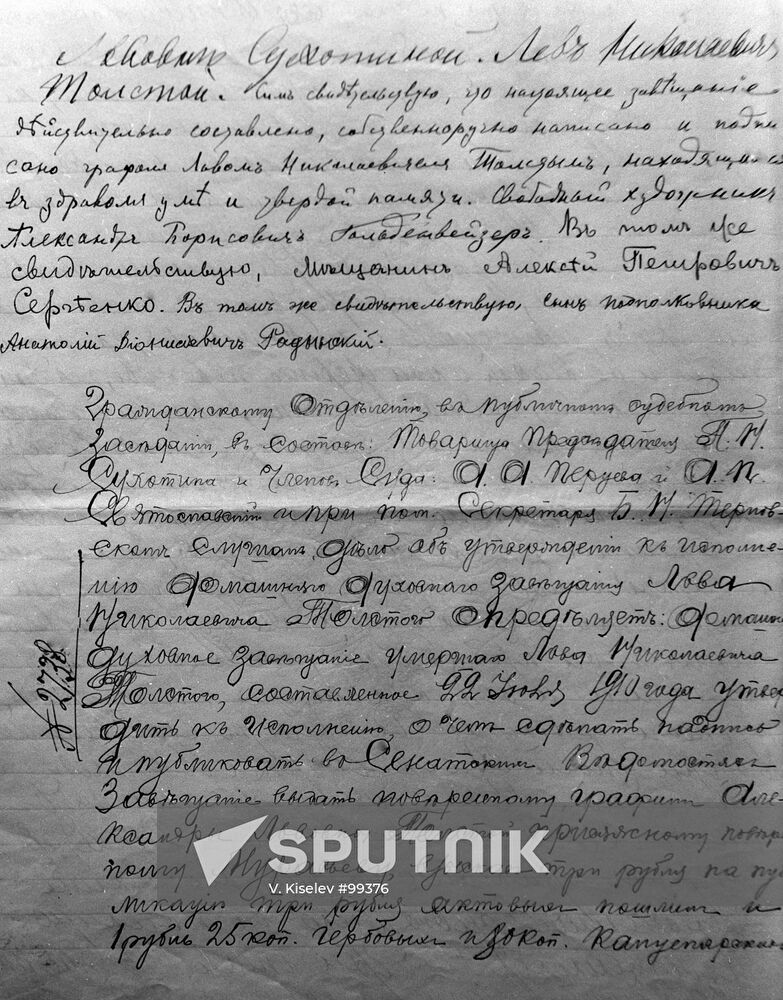 Львовнѣ Сухотиной. Левъ Николаевичъ
Толстой. Симъ свидѣтельствую, что настоящее завѣщаніе
дѣйствительно составлено, собственноручно написано и подпи
сано графомъ Львомъ Николаевичемъ Толстымъ, находящимся
въ здравомъ умѣ и твердой памяти. Свободный художникъ
Александръ Борисовичъ Гольденвейзеръ. Въ томъ же
свидѣтельствую, мѣщанинъ Алексѣй Петровичъ
Сергѣенко. Въ томъ же свидѣтельствую, сынъ подполковника
Анатолій Діонисіевичъ Радынскій.
Гражданскому Отдѣленію, въ публичномъ судебномъ
Засѣданіи, въ составѣ: Товарища Предсѣдателя
Сухотина и Членовъ Суда:
Святославскій и при пом. Секретаря Б. И. Тернов-
скомъ слушалъ дѣло объ утвержденіи къ исполне-
нію домашняго духовнаго завѣщанія Льва
Николаевича Толстого опредѣляетъ: домашнее
духовное завѣщаніе умершаго Льва Николаевича
Толстого, составленное 22 Іюля 1910 года утвер
дить къ исполненію, о чемъ сдѣлать надпись
и публиковать въ Сенатскихъ Вѣдомостяхъ
Завѣщаніе выдать повѣренному графини Але-
ксандры Львовны Толстой присяжному повѣрен
ному Муравьеву, три рубля на пуб
ликацію три рубля актовыхъ пошлинъ и
1 рубль 25 коп. гербовыхъ и 80 коп. канцелярскихъ
SPUTNIK
V. Kiselev #99376